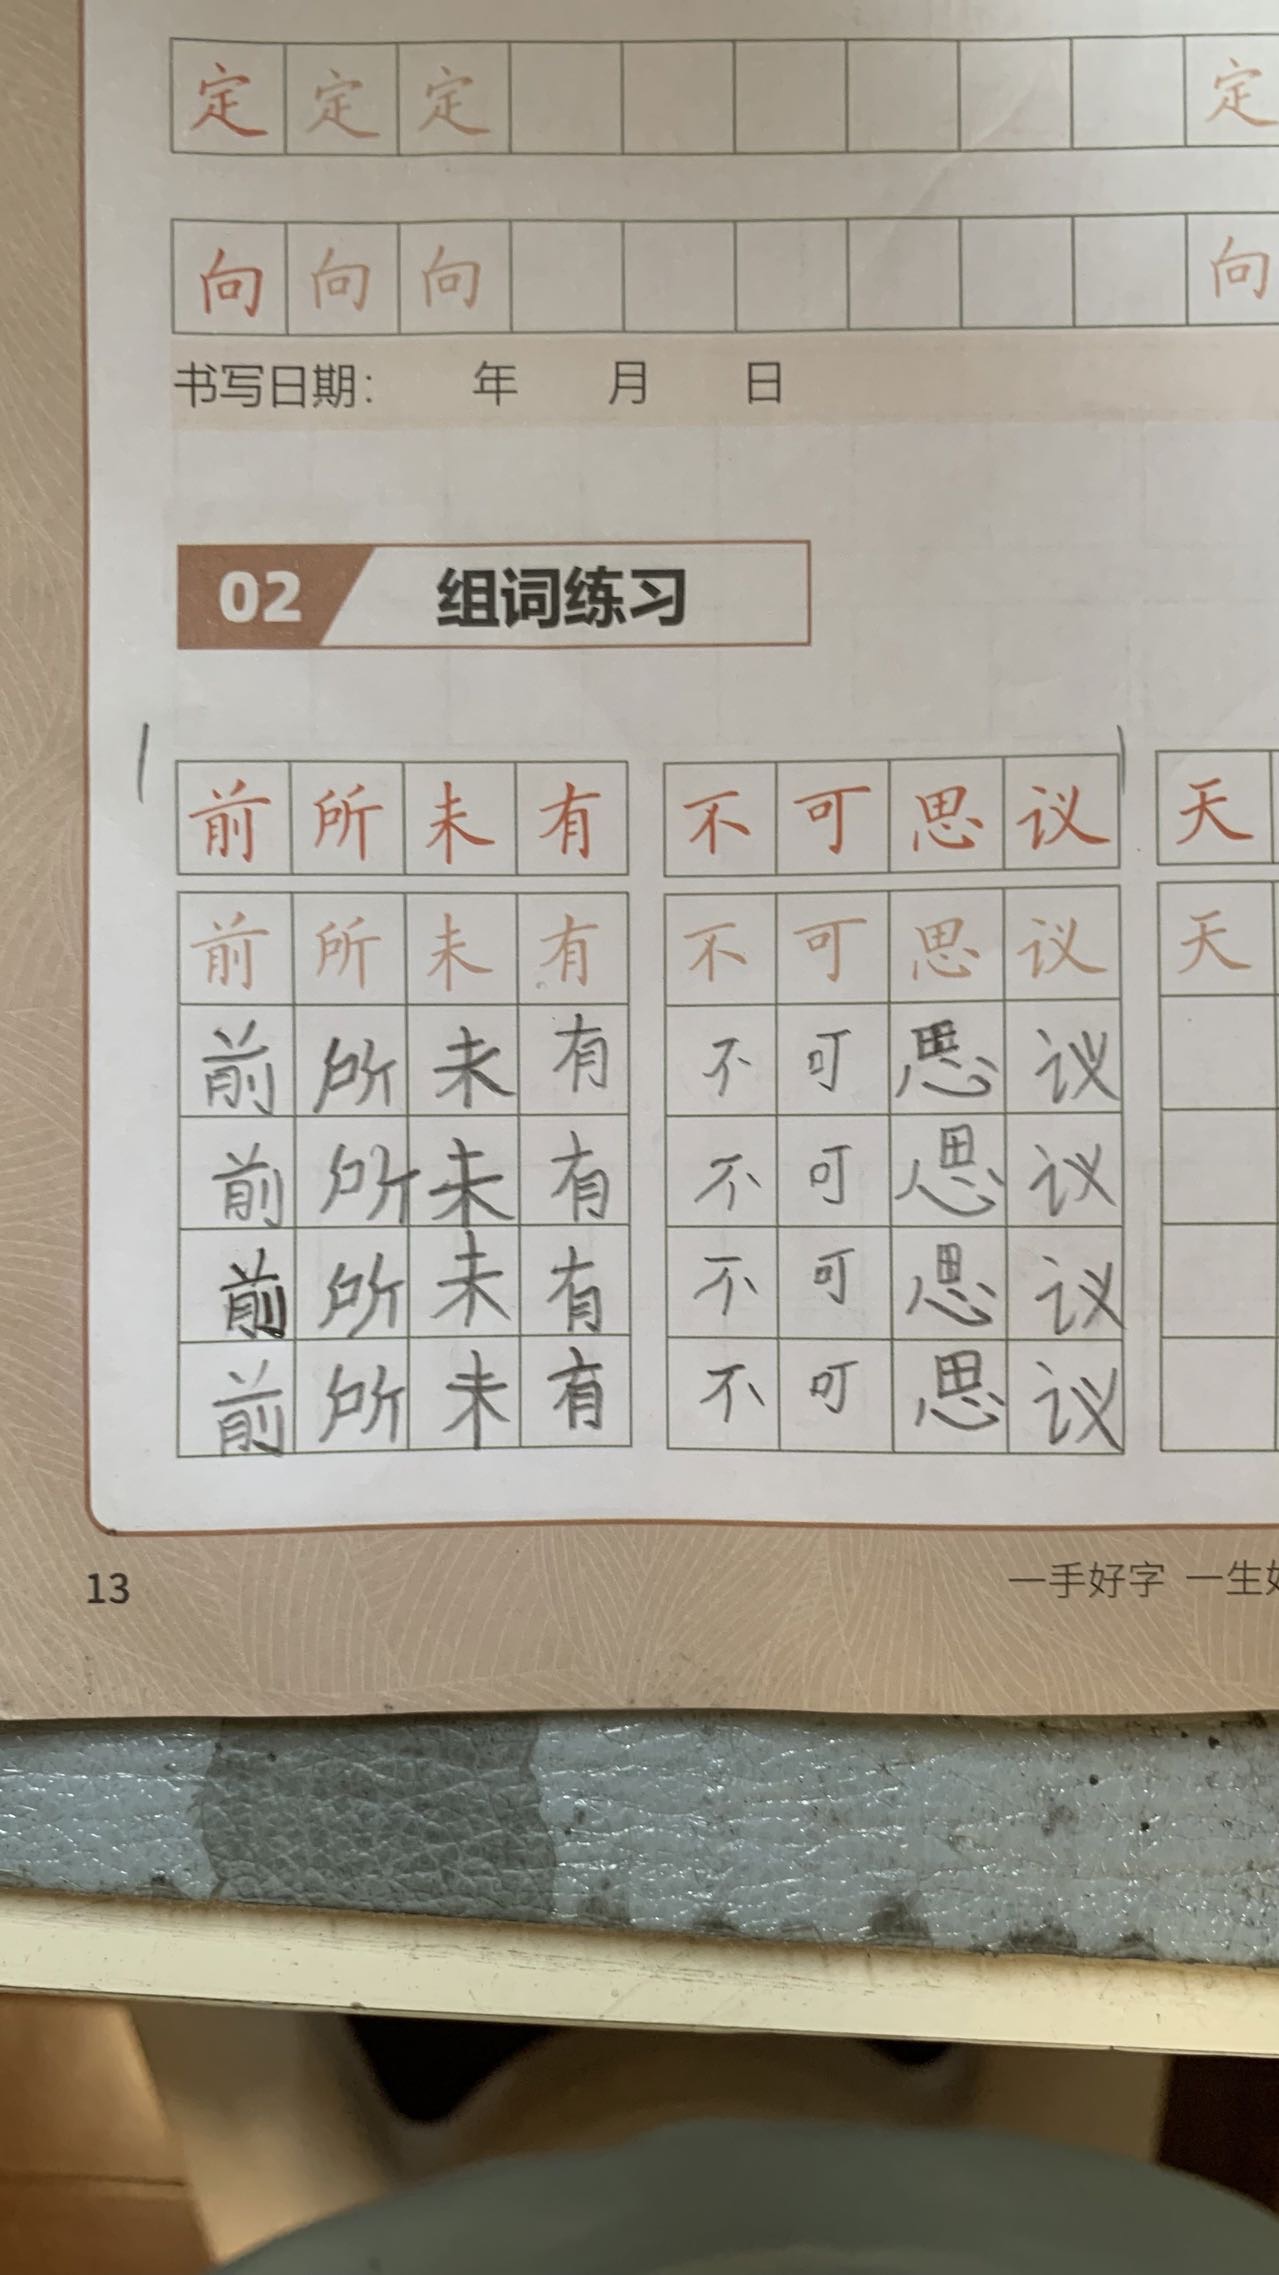 定定定定
向向向向
书写日期： 年 月 日
02 组词练习
前所未有 不可思议 天
前所未有 不可思议 天
前所未有 不可思议
前所未有 不可思议
前所未有 不可思议
前所未有 不可思议
13 一手好字 一生